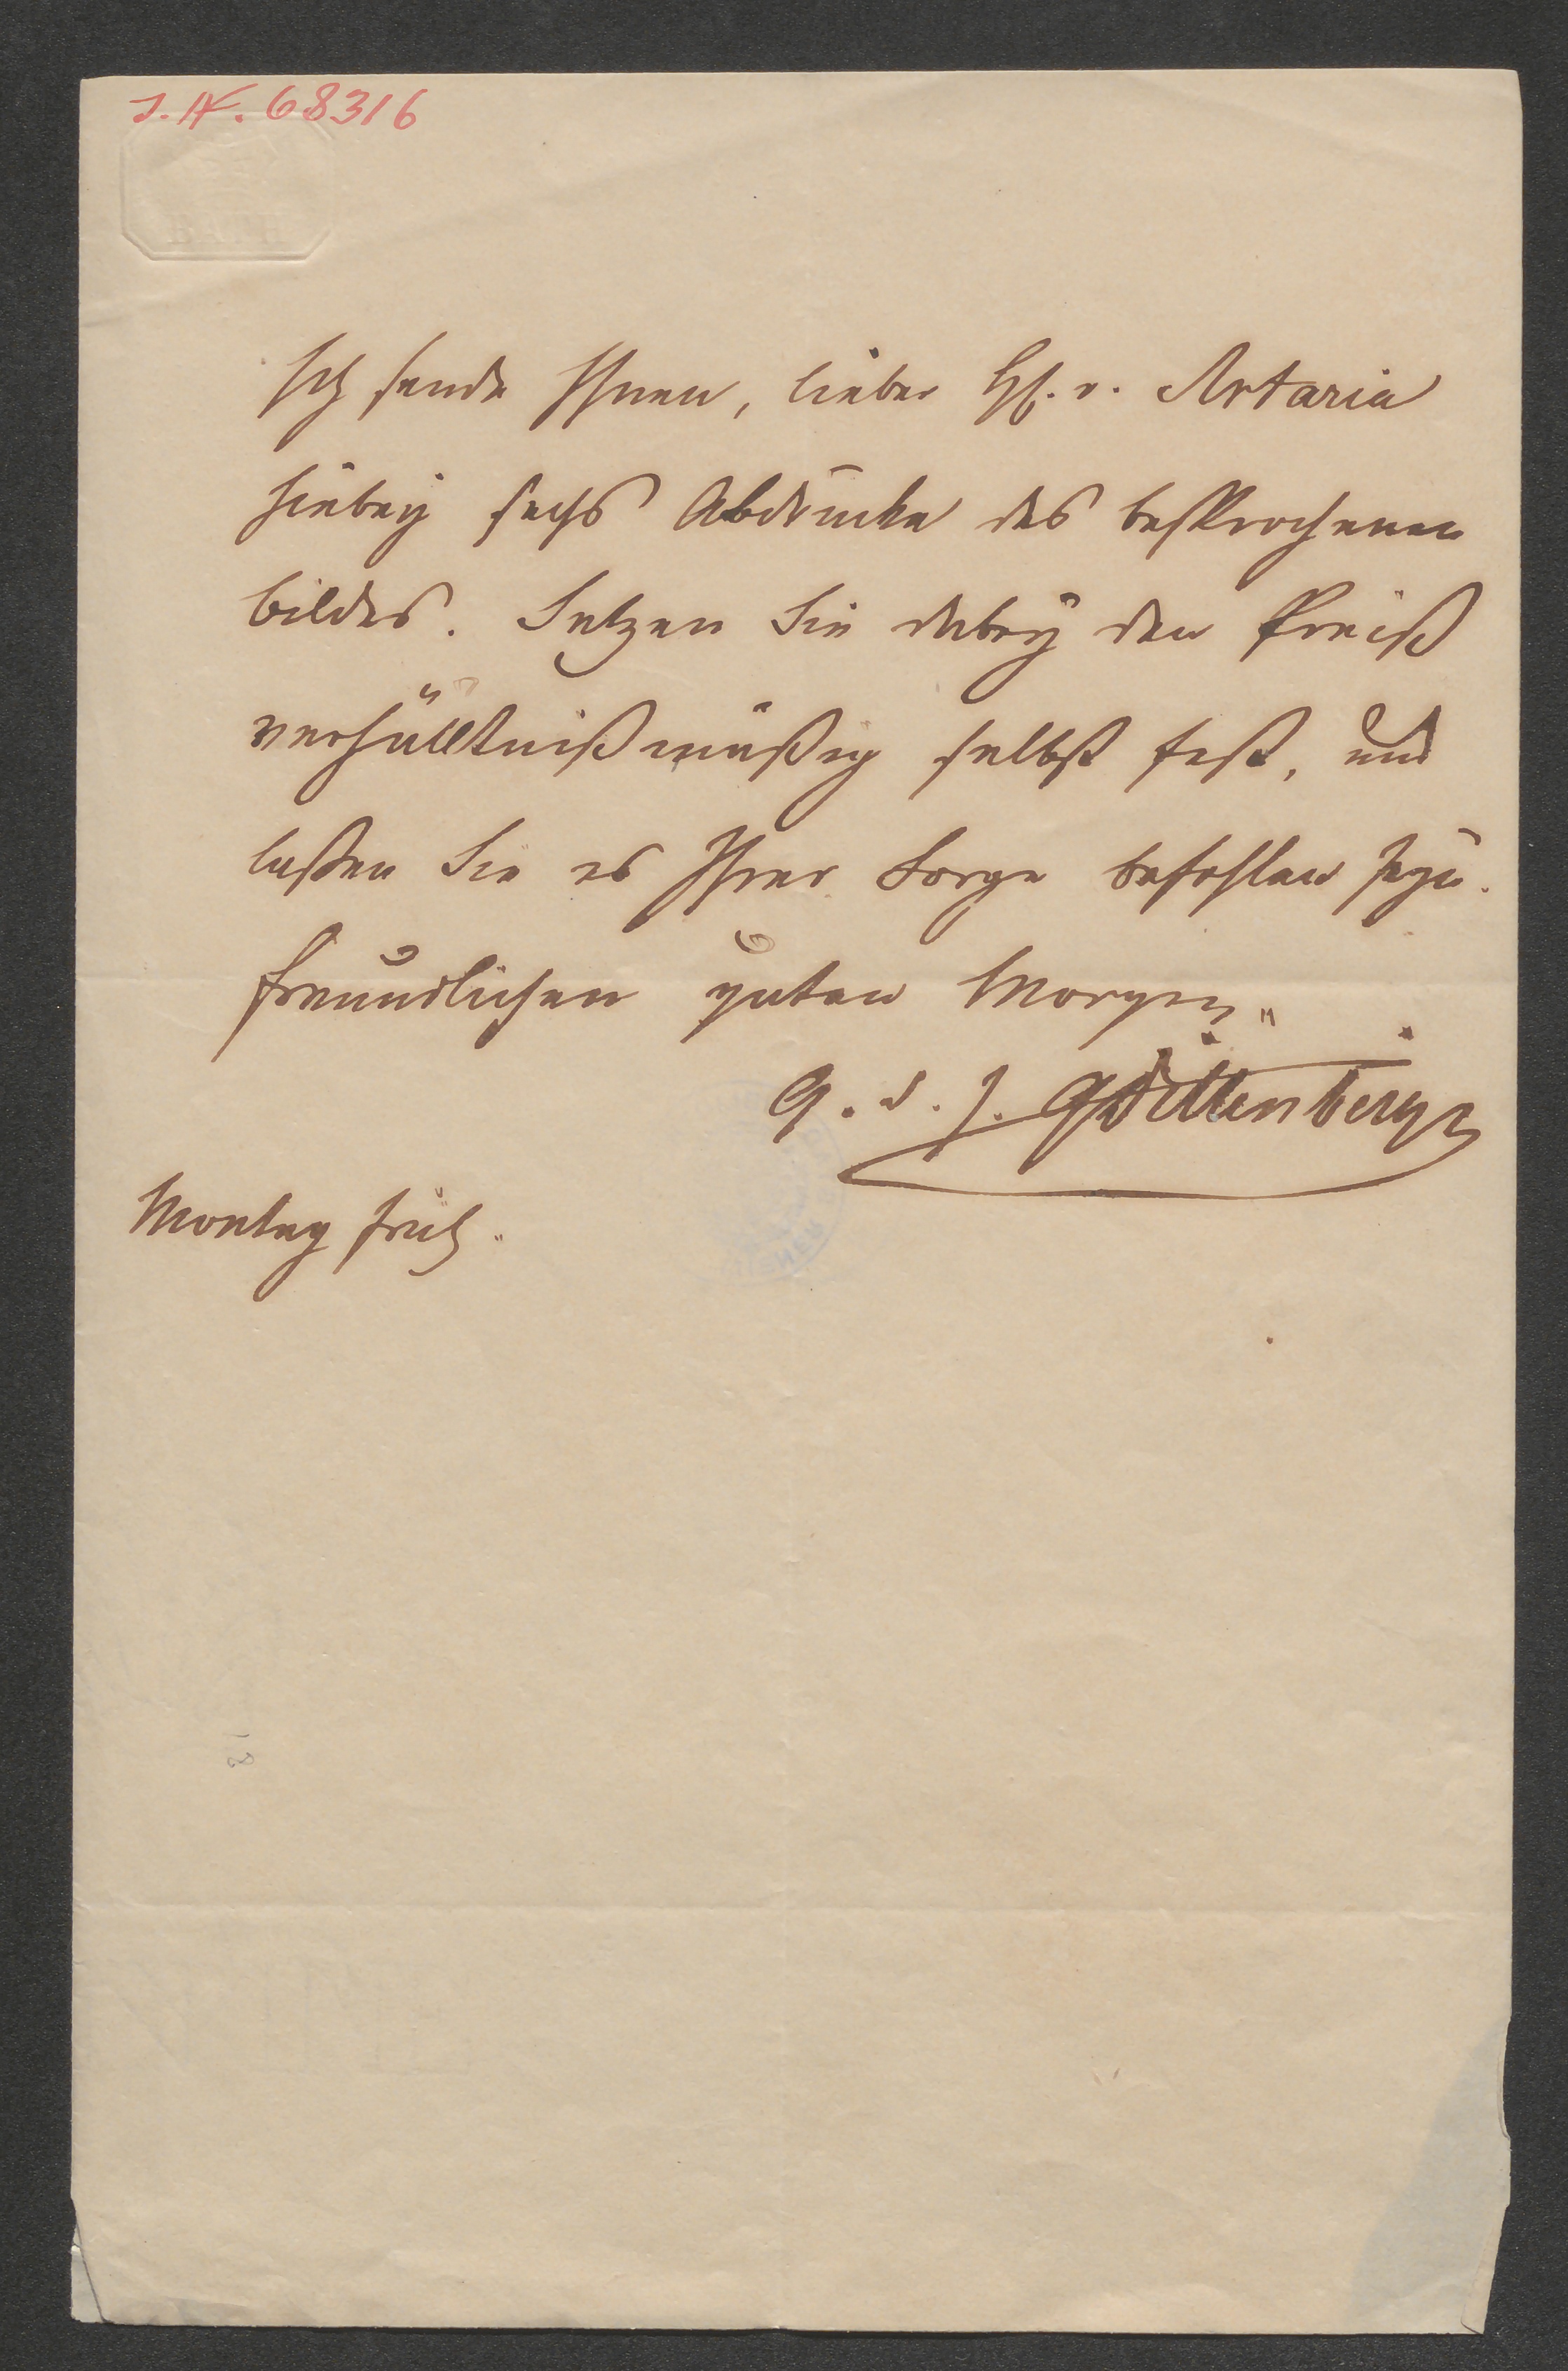 J. N. 68316
Ich sende Ihnen, lieber H. v. Artaria
hiebey sechs Abdrücke des besprochenen
Bildes. Setzen Sie dabey den Preiß
verhälltnißmäßig selbst fest, und
laßen Sie es Ihrer Sorge befohlen seyn.
freundlichen guten Morgen"
G. d. J.
Montag früh.